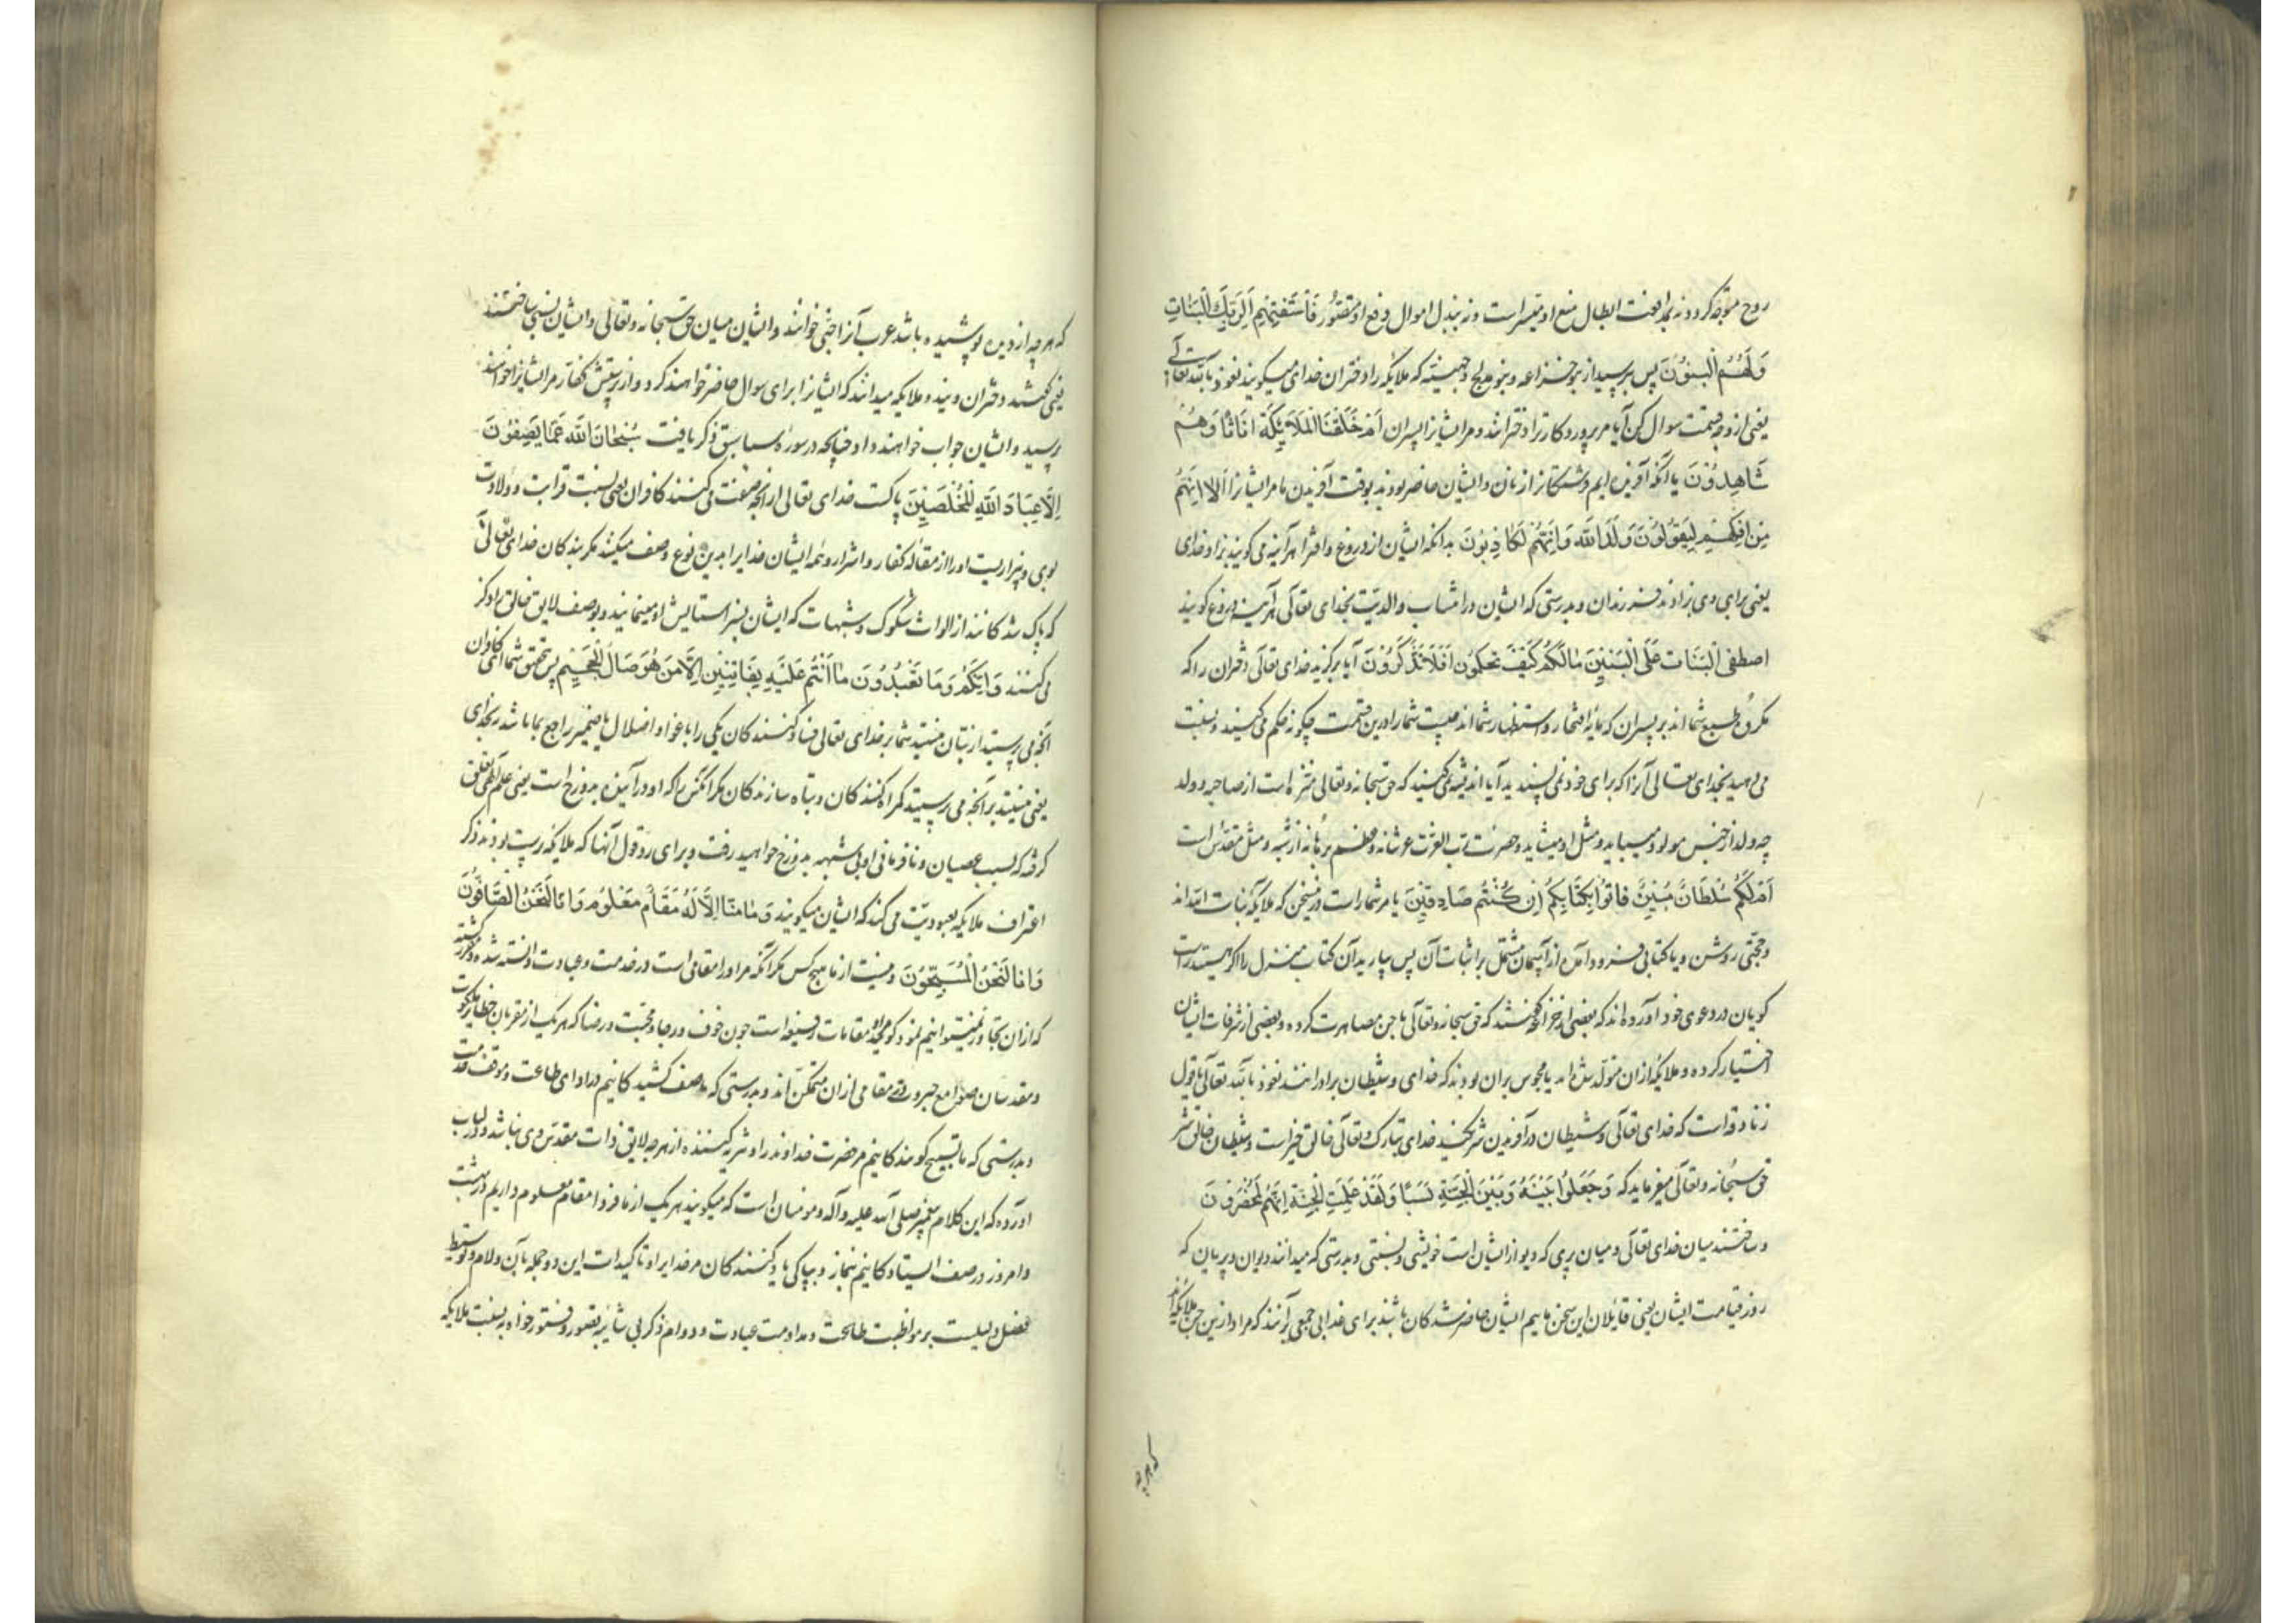 روح متوجه کردد نه بمدافعت ابطال منع او متیسر است و نه ببذل اموال دفع او متصور فَاسْتَفْتِهِمْ اَلِرَبِّكَ الْبَنَاتِ
وَلَهُمُ الْبَنُوْنَ پس بپرس از بنو خزاعه و بنو ملیح و جهینه که ملایکه را دختران خدای میکویند نعوذ بالله تعالی
یعنی از وجه قسمت سوال کن آیا مر پروردکار ترا دخترانند و مر ایشانرا پسران اَمْ خَلَقْنَا الْمَلَايِكَةَ اِنَاثًا وَهُمْ
شَاهِدُوْنَ یا آنکه آفریده ایم فرشتکانرا زنان و ایشان حاضر بودند بوقت آفریدن ما مر ایشانرا اَلَا اِنَّهُمْ
مِنْ اِفْكِهِمْ لَيَقُوْلُوْنَ وَلَدَ اللّٰهُ وَاِنَّهُمْ لَكَاذِبُوْنَ بدانکه ایشان از دروغ و افترا هر آینه می کویند بزاد خدای
یعنی برای وی زادند فرزندان و بدرستی که ایشان در انتساب والدیت بخدای تعالی هر آینه دروغ کویند
اصْطَفَى الْبَنَاتِ عَلَى الْبَنِيْنَ مَالَكُمْ كَيْفَ تَحْكُمُوْنَ اَفَلَا تَذَكَّرُوْنَ آیا برکزید خدای تعالی دختران را که
مکروه طبع شما اند بر پسران که مایه افتخار و استظهار شما اند چیست شما را درین قسمت چکونه حکم می کنید و نسبت
می دهید بخدای تعالی آنرا که برای خود نمی پسندید آیا اندیشه نمی کنید که حق سبحانه و تعالی منزه است از صاحبه و ولد
چه ولد از جنس مولود میباید و مثل او میشاید و حضرت رب العزت عز شانه و عظم برهانه از شبه و مثل مقدس است
اَمْ لَكُمْ سُلْطَانٌ مُبِيْنٌ فَاتُوا بِكِتَابِكُمْ اِنْ كُنْتُمْ صَادِقِيْنَ یا مر شما راست درین سخن که ملایکه بنات الله اند
و حجتی روشن و یا کتابی فرود آمده از آسمان مشتمل بر اثبات آن پس بیارید آن کتاب منزل را اکر هستید راست
کویان در دعوی خود آورده اند که بعضی از خزاعه کفتند که حق سبحانه و تعالی با جن مصاهرت کرده و بعضی از شرفات ایشان
اختیار کرده و ملایکه ازان متولد شده اند یا مجوس بران بودند که خدای و شیطان برادرانند نعوذ بالله تعالی یا قول
زنادقه است که خدای تعالی و شیطان در آفریدن شریکند خدای تبارک و تعالی خالق خیر است و شیطان خالق شر
حق سبحانه و تعالی میفرماید که وَجَعَلُوا بَيْنَهُ وَبَيْنَ الْجِنَّةِ نَسَبًا وَلَقَدْ عَلِمَتِ الْجِنَّةُ اِنَّهُمْ لَمُحْضَرُوْنَ
و ساختند میان خدای تعالی و میان پری که دیو از ایشان است خویشی و نسبتی و بدرستی که میدانند دیوان و پریان که
روز قیامت ایشان یعنی قایلان این سخن ماییم ایشان حاضر شدکان باشند برای عذاب جمعی برآنند که مراد ازین جن ملایکه اند
که هر چه
که هر چه از دیده پوشیده باشد عرب آنرا جنی خوانند و ایشان میان حق سبحانه و تعالی و ایشان نسبی ساختند
یعنی کفتند دختران ویند و ملایکه میدانند که ایشانرا برای سوال حاضر خواهند کرد و از پرستش کفار مر ایشانرا خواهند
پرسید و ایشان جواب خواهند داد چنانچه در سوره سبا سبق ذکر یافت سُبْحَانَ اللّٰهِ عَمَّا يَصِفُوْنَ
اِلَّا عِبَادَ اللّٰهِ الْمُخْلَصِيْنَ پاکست خدای تعالی از آنچه صفت می کنند کافران یعنی نسبت قرابت و ولادت
بوی و بیزاریست او را از مقاله کفار و اشرار و همه ایشان خدایرا بدین نوع وصف میکنند مکر بندکان خدای تعالی
که پاک شدکانند از الواث شکوک و شبهات که ایشان بسزا ستایش او مینمایند و بوصف لایق خالق را ذکر
می کنند وَاِنَّكُمْ وَمَا تَعْبُدُوْنَ مَا اَنْتُمْ عَلَيْهِ بِفَاتِنِيْنَ اِلَّا مَنْ هُوَ صَالِ الْجَحِيْمِ پس بتحقیق شما ای کافران
آنچه می پرستید از بتان نیستید شما بر خدای تعالی فساد کنندکان یکی را باغوا و اضلال یا ضمیر راجع بما باشد نه بخدای
یعنی نیستید بر آنچه می پرستید کمراه کنندکان و تباه سازندکان مکر آنکس را که او در آینده بدوزخ است یعنی علم الهی تعلق
کرفته که بسبب عصیان و نافرمانی او بی شبهه بدوزخ خواهید رفت و برای رد قول آنها که ملایکه پرست بودند ذکر
اعتراف ملایکه بعبودیت می کند که ایشان میکویند وَمَا مِنَّا اِلَّا لَهُ مَقَامٌ مَعْلُوْمٌ وَاِنَّا لَنَحْنُ الصَّافُّوْنَ
وَاِنَّا لَنَحْنُ الْمُسَبِّحُوْنَ و نیست از ما هیچ کس مکر آنکه مر او را مقامی است در خدمت و عبادت دانسته شده و مقرر کشته
که ازان تجاوز نمیتوانیم نمود و کویند مراد مقامات رفیعه است چون خوف و رجا و محبت و رضا که هر یک از مقربان حظایر ملکوت
و مقدسان صوامع جبروت در مقامی ازان متمکن اند و بدرستی که ما صف کشیدکانیم در ادای طاعت و موقف خدمت
و بدرستی که ما تسبیح کویندکانیم مر حضرت خداوند را و تنزیه کننده از هر چه لایق ذات مقدس وی نباشد و در لباب
آورده که این کلام پیغمبر صلی الله علیه و آله و مومنان است که میکویند هر یک از ما فردا مقام معلوم داریم در بهشت
و امروز در صف ایستادکانیم بنماز و بپاکی یاد کنندکان مر خدایرا و تاکیدات این دو جمله بان و لام و توسط
فصل دلیلست بر مواظبت طاعت و مداومت عبادت و دوام ذکر بی شایبه قصور و فتور خواه به نسبت ملایکه